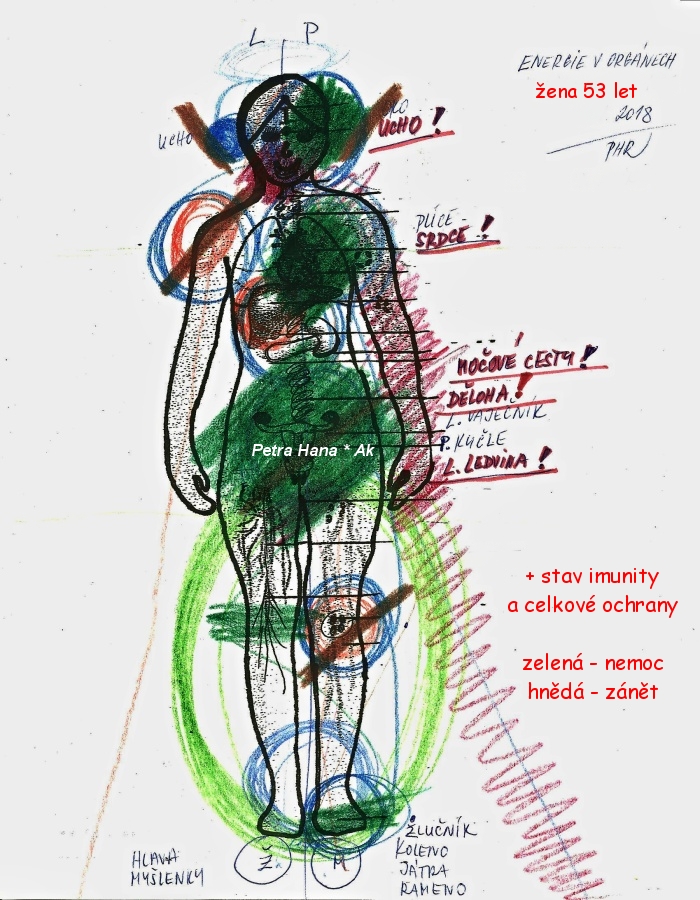 L P
ENERGIE V ORGÁNECH
žena 53 let
2018
PHR
UCHO
OKO
UCHO !
PLÍCE -
SRDCE !
MOČOVÉ CESTY !
DĚLOHA !
L. VAJEČNÍK
P. KYČLE
L. LEDVINA !
Petra Hana * Ak
+ stav imunity
a celkové ochrany
zelená - nemoc
hnědá - zánět
HLAVA
MYŠLENKY
Ž.
M
ŽLUČNÍK
KOLENO
JÁTRA
RAMENO